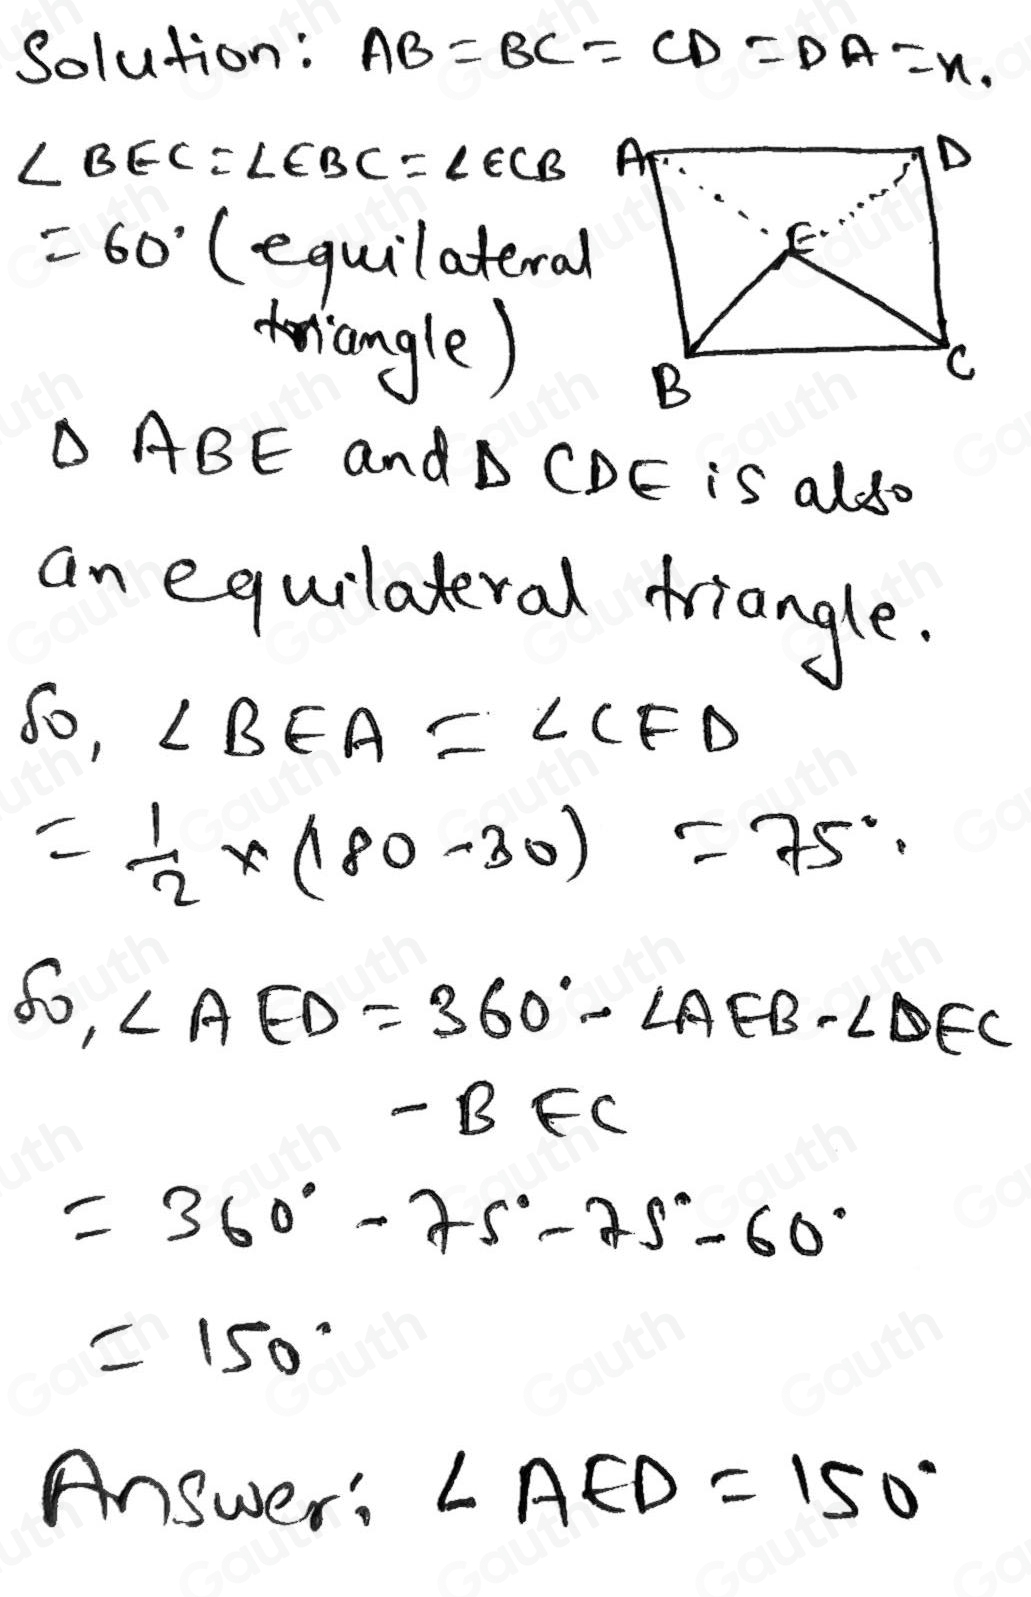 Solution: AB = BC = CD = DA = n.
∠BEC = ∠EBC = ∠ECB
= 60° (equilateral
triangle)
A
D
E
B
C
Δ ABE and Δ CDE is also
an equilateral triangle.
So, ∠BEA = ∠CED
= 1/2 × (180 - 30) = 75°.
So, ∠AED = 360° - ∠AEB - ∠DEC
- BEC
= 360° - 75° - 75° - 60°
= 150°
Answer: ∠AED = 150°